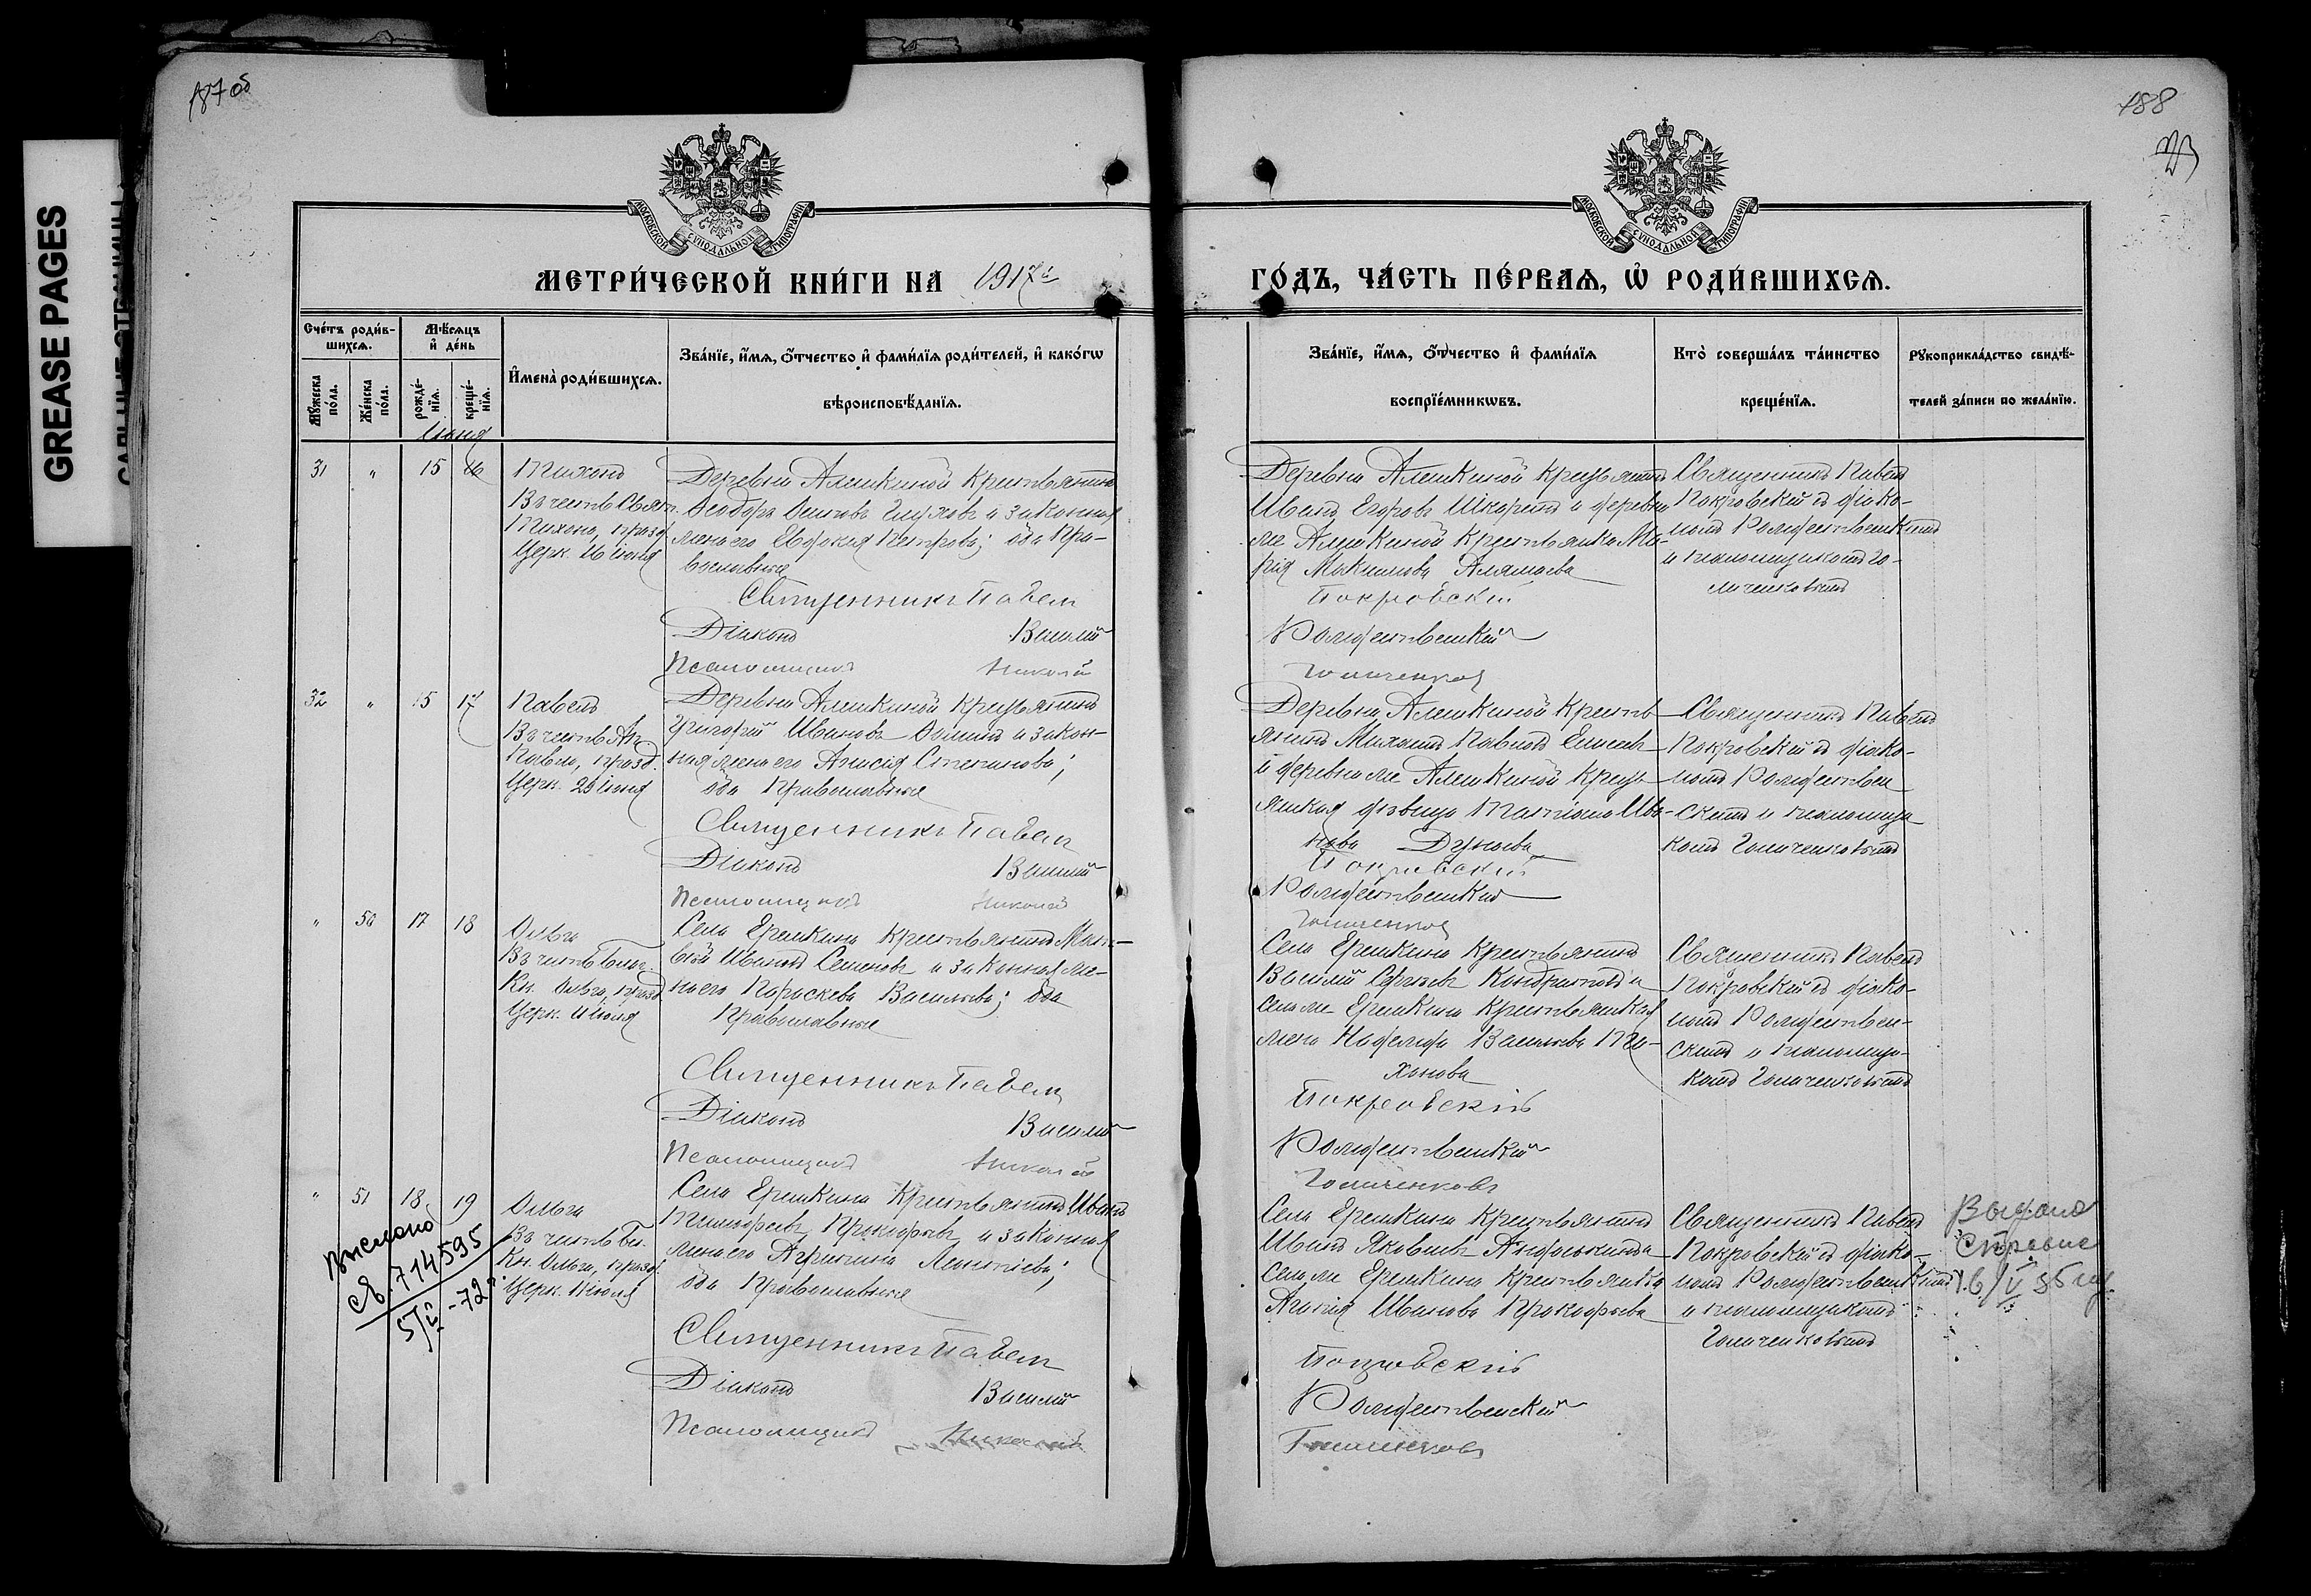 187 об
188
GREASE PAGES
МОСКОВСКОЙ СѴНОДАЛЬНОЙ ТИПОГРАФІИ
МОСКОВСКОЙ СѴНОДАЛЬНОЙ ТИПОГРАФІИ
МЕТРИ́ЧЕСКОЙ КНИ́ГИ НА 1917й
ГО́ДЪ, ЧА́СТЬ ПЕ́РВАѦ, Ѡ҆ РОДИ́ВШИХСѦ.
Сче́тъ роди́в-
шихсѧ.
Мѣ́сѧцъ
и҆ де́нь
Мꙋ́жеска
по́ла.
Же́нска
по́ла.
рожде́-
нїѧ.
креще́-
нїѧ.
И҆мена̀ роди́вшихсѧ.
Зва́нїе, и҆́мѧ, ѻ҆́тчество и҆ фами́лїѧ роди́телей, и҆ како́гѡ
вѣроисповѣ́данїѧ.
Зва́нїе, и҆́мѧ, ѻ҆́тчество и҆ фами́лїѧ
воспрїе́мникѡвъ.
Кто̀ соверша́лъ та́инство
креще́нїѧ.
Рꙋкоприкла́дство свидѣ́-
телей за́писи по жела́нїю.
Іюня
31 " 15 16
Тихонъ
Въ честь Свят.
Тихона, празд.
Церк. 16 Іюня
Деревни Алешкиной Крестьянинъ
Ѳеодоръ Глуховъ и законная
жена его Евдокия Петрова; оба Пра-
вославные
Священникъ Павелъ
Діаконъ Василій
Псаломщикъ Николай
Деревни Алешкиной Крестьянинъ
Иванъ Егоровъ и деревни
же Алешкиной Крестьянка Ма-
рія Максимова
Покровскій
Рождественскій
Голиченковъ
Священникъ Павелъ
Покровскій съ діако-
номъ Рождественскимъ
и псаломщикомъ Го-
личенковымъ
32 " 15 17
Павелъ
Въ честь Ап.
Павла, празд.
Церк. 29 Іюня
Деревни Алешкиной Крестьянинъ
Григорій Ивановъ и закон-
ная жена его Анисія Степанова;
оба Православные
Священникъ Павелъ
Діаконъ Василій
Псаломщикъ Николай
Деревни Алешкиной Кресть-
янинъ Михаилъ Павловъ
и деревни же Алешкиной Кресть-
янская дѣвица Татіана Ива-
нова
Покровскій
Рождественскій
Голиченковъ
Священникъ Павелъ
Покровскій съ діако-
номъ Рождествен-
скимъ и псаломщи-
комъ Голиченковымъ
" 50 17 18
Ольга
Въ честь Благ.
Кн. Ольги, празд.
Церк. 11 Іюля
Села Ерешкина Крестьянинъ Мат-
вѣй Ивановъ Семеновъ и законная же-
на его Параскева Васильева; оба
Православные
Священникъ Павелъ
Діаконъ Василій
Псаломщикъ Николай
Села Ерешкина Крестьянинъ
Василій Сергѣевъ и
села же Ерешкина Крестьянская
жена Надежда Васильева Ти-
хонова
Покровскій
Рождественскій
Голиченковъ
Священникъ Павелъ
Покровскій съ діако-
номъ Рождествен-
скимъ и псаломщи-
комъ Голиченковымъ
" 51 18 19
Ольга
Въ честь Бл.
Кн. Ольги, празд.
Церк. 11 Іюля
714595
Села Ерешкина Крестьянинъ Иванъ
Тимофеевъ Прокофьевъ и законная
жена его Агрипина Леонтіева;
оба Православные
Священникъ Павелъ
Діаконъ Василій
Псаломщикъ Николай
Села Ерешкина Крестьянинъ
Иванъ Яковлевъ и
села же Ерешкина Крестьянка
Агапія Иванова Прокофьева
Покровскій
Рождественскій
Голиченковъ
Священникъ Павелъ
Покровскій съ діако-
номъ Рождественскимъ
и псаломщикомъ
Голиченковымъ
Выдана